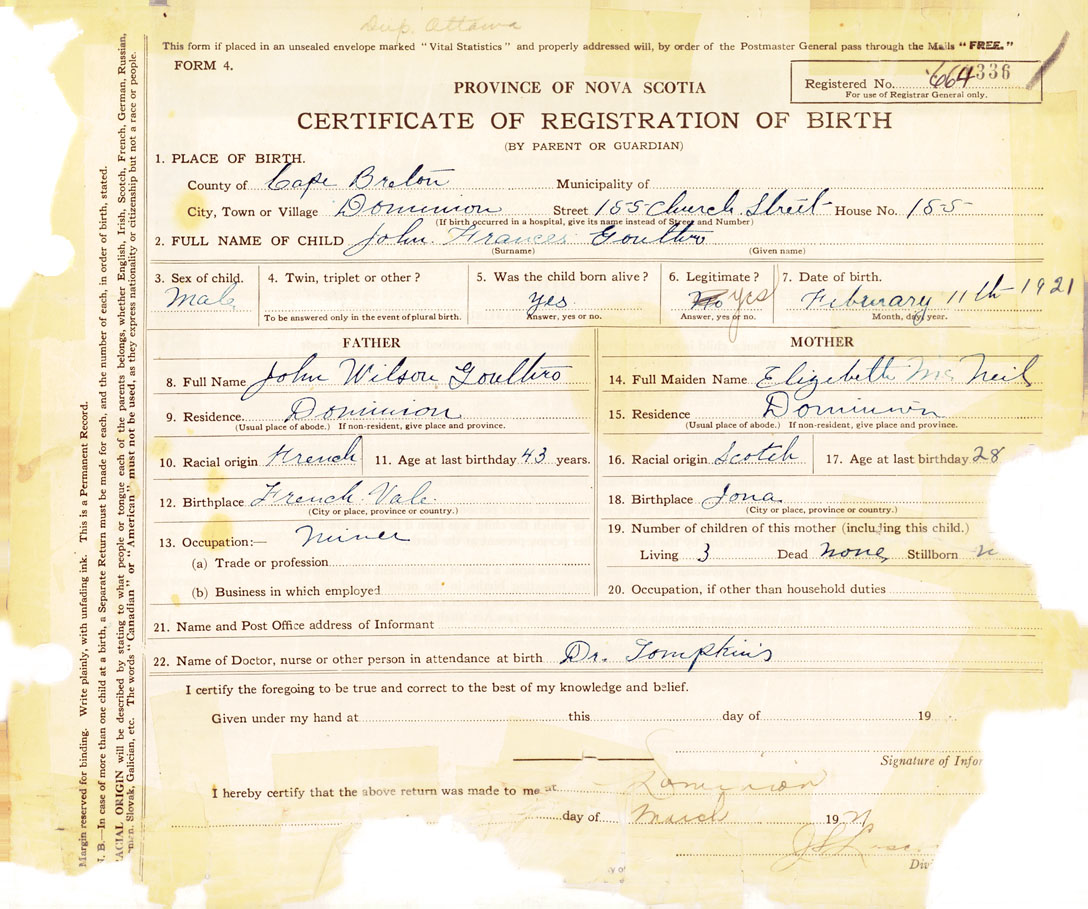 Dup. Ottawa
This form if placed in an unsealed envelope marked "Vital Statistics" and properly addressed will, by order of the Postmaster General pass through the Mails "FREE."
FORM 4.
Registered No. 664 336
For use of Registrar General only.
PROVINCE OF NOVA SCOTIA
CERTIFICATE OF REGISTRATION OF BIRTH
(BY PARENT OR GUARDIAN)
1. PLACE OF BIRTH.
County of Cape Breton Municipality of
City, Town or Village Dominion Street 155 Church Street House No. 155
(If birth occurred in a hospital, give its name instead of Street and Number)
2. FULL NAME OF CHILD John Frances Goulthro
(Surname) (Given name)
3. Sex of child. 4. Twin, triplet or other? 5. Was the child born alive? 6. Legitimate? 7. Date of birth.
Male yes No yes February 11th 1921
To be answered only in the event of plural birth. Answer, yes or no. Answer, yes or no. Month, day, year.
FATHER
8. Full Name John Wilson Goulthro
9. Residence. Dominion
(Usual place of abode.) If non-resident, give place and province.
10. Racial origin French 11. Age at last birthday 43 years.
12. Birthplace French Vale
(City or place, province or country.)
13. Occupation:— Miner
(a) Trade or profession
(b) Business in which employed
MOTHER
14. Full Maiden Name Elizibeth Mc Neil
15. Residence Dominion
(Usual place of abode.) If non-resident, give place and province.
16. Racial origin Scotch 17. Age at last birthday 28
18. Birthplace Iona
(City or place, province or country.)
19. Number of children of this mother (including this child.)
Living 3 Dead none Stillborn n
20. Occupation, if other than household duties
21. Name and Post Office address of Informant
22. Name of Doctor, nurse or other person in attendance at birth Dr. Tompkins
I certify the foregoing to be true and correct to the best of my knowledge and belief.
Given under my hand at this day of 19
Signature of Infor
I hereby certify that the above return was made to me at Dominion
day of March 192
Div
Margin reserved for binding. Write plainly, with unfading ink. This is a Permanent Record.
B.—In case of more than one child at a birth, a Separate Return must be made for each, and the number of each, in order of birth, stated.
ACIAL ORIGIN will be described by stating to what people or tongue each of the parents belongs, whether English, Irish, Scotch, French, German, Russian,
man, Slovak, Galician, etc. The words "Canadian" or "American" must not be used, as they express nationality or citizenship but not a race or people.